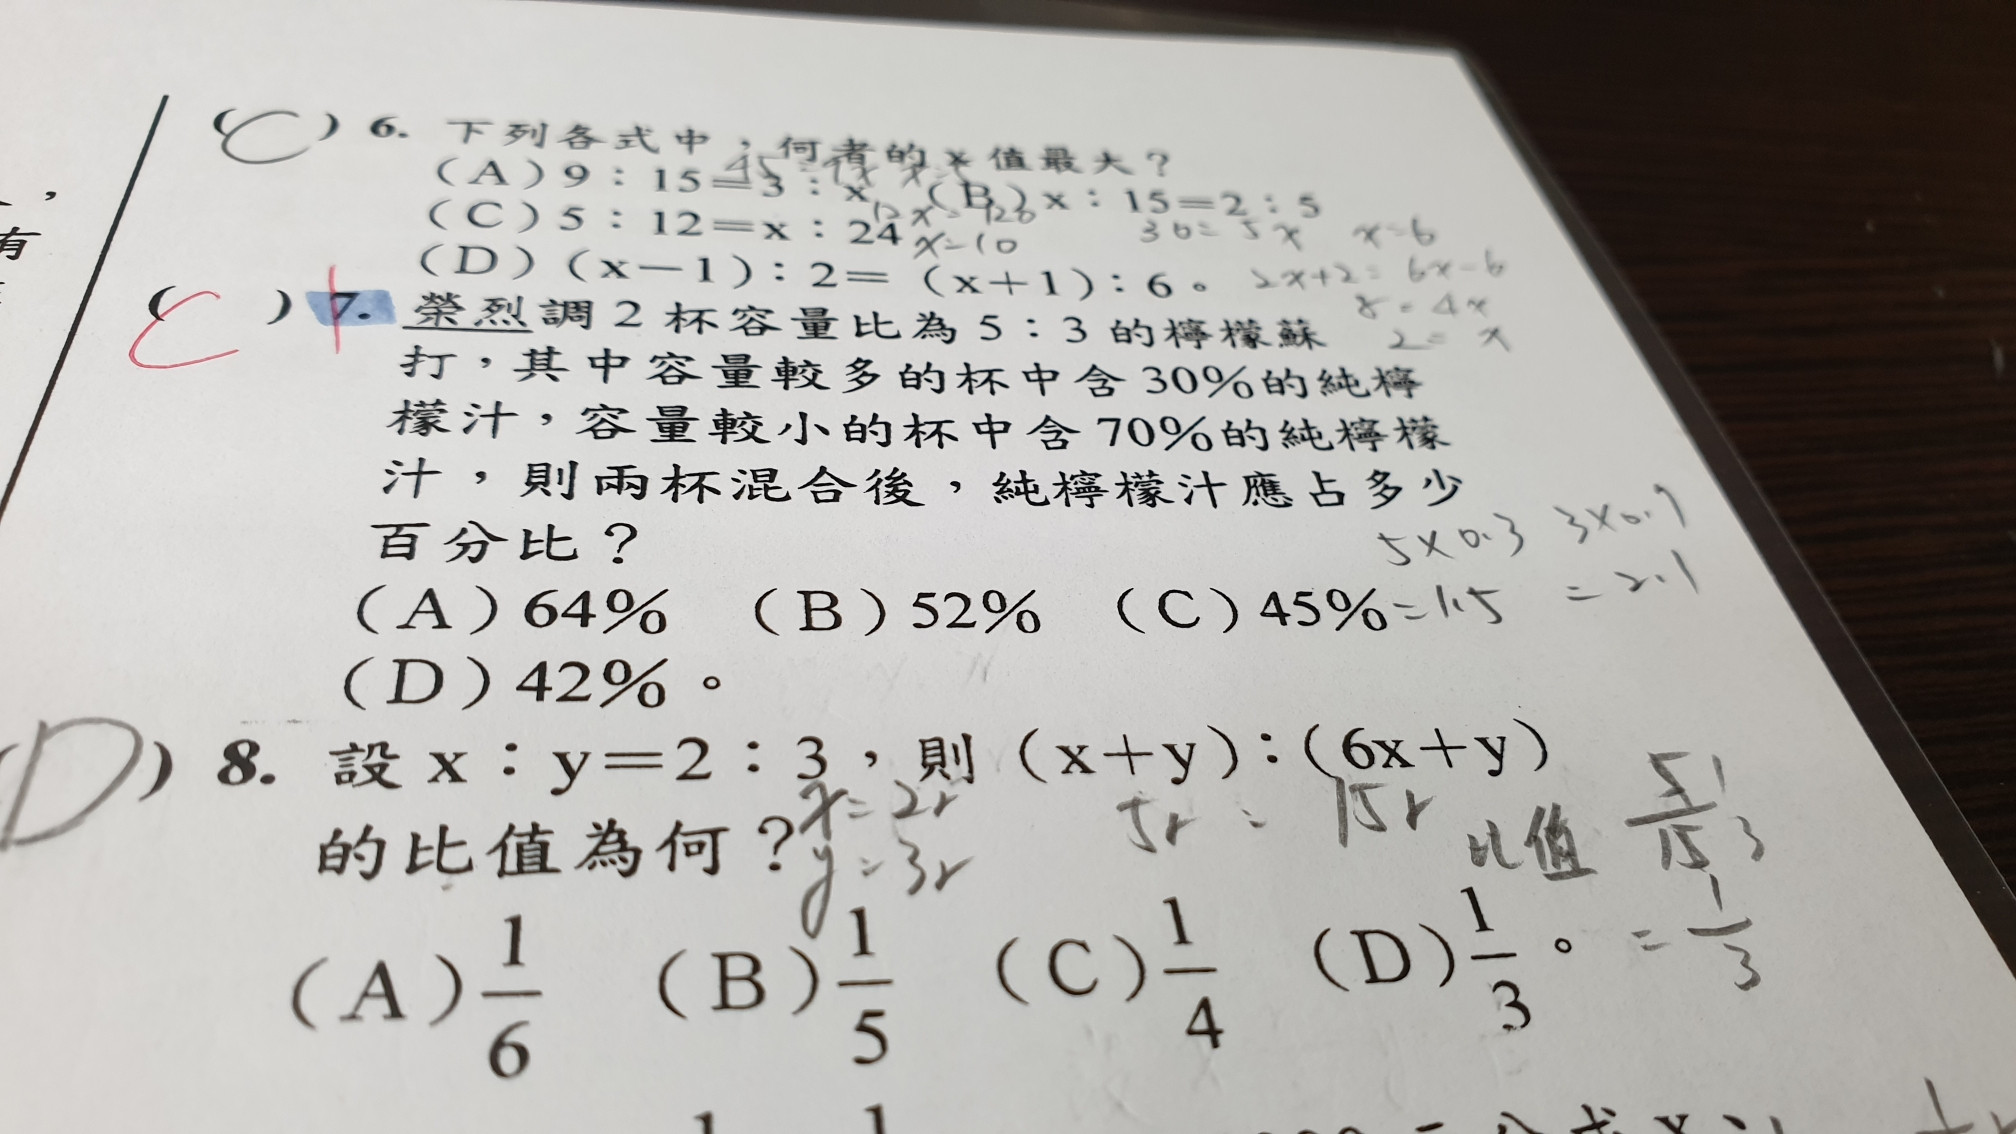 ，
有
(C) 6. 下列各式中，何者的x值最大？
(A) 9：15＝3：x (B) x：15＝2：5
(C) 5：12＝x：24
12x=120
x=10
30=5x x=6
(D) (x－1)：2＝(x＋1)：6。
2x+2=6x-6
8=4x
2=x
(C) 7. 榮烈調2杯容量比為5：3的檸檬蘇
打，其中容量較多的杯中含30%的純檸
檬汁，容量較小的杯中含70%的純檸檬
汁，則兩杯混合後，純檸檬汁應占多少
百分比？
5×0.3 3×0.7
=1.5 =2.1
(A) 64% (B) 52% (C) 45%
(D) 42%。
(D) 8. 設x：y＝2：3，則(x＋y)：(6x＋y)
的比值為何？
x=2r
y=3r
5r : 15r
比值 5/15 1/3
= 1/3
(A) 1/6 (B) 1/5 (C) 1/4 (D) 1/3。